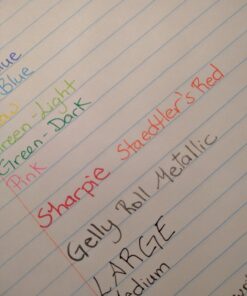 Blue
Green-Light
Green-Dark
Pink
Sharpie Staedtler's Red
Gelly Roll Metallic
LARGE
Medium